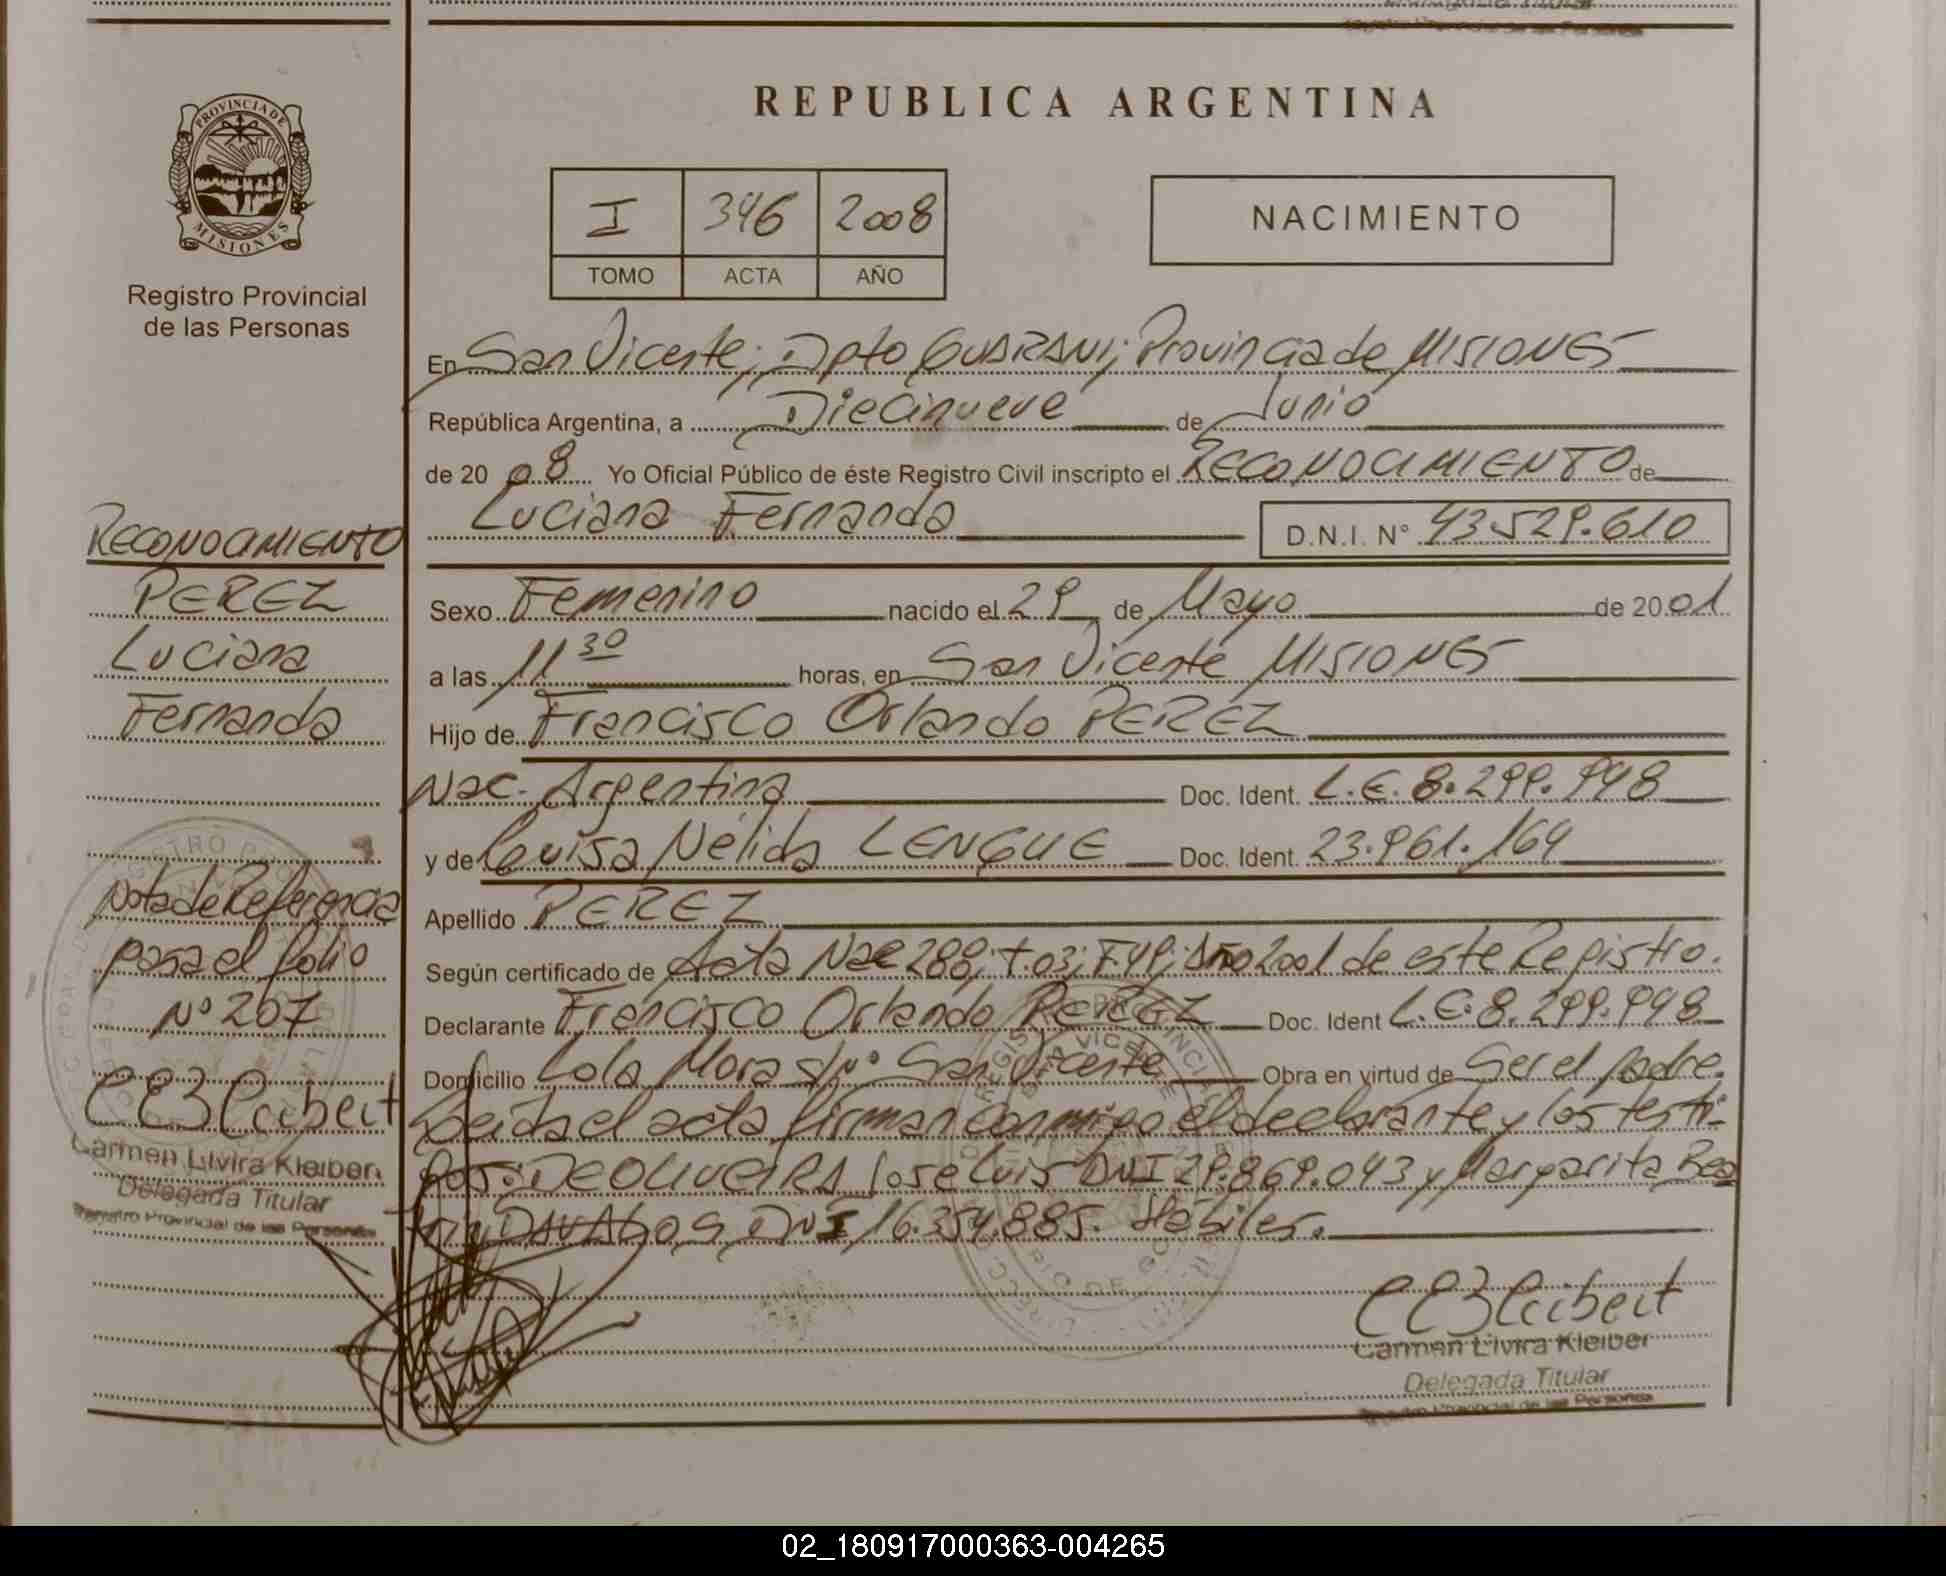 REPUBLICA ARGENTINA
PROVINCIA DE
MISIONES
Registro Provincial
de las Personas
I 346 2008
TOMO ACTA AÑO
NACIMIENTO
En San Vicente; Dpto GUARANI; Provincia de MISIONES
República Argentina, a Diecinueve de Junio
de 20 08 Yo Oficial Público de éste Registro Civil inscripto el RECONOCIMIENTO de
Luciana Fernanda D.N.I. N° 43.529.610
Sexo Femenino nacido el 29 de Mayo de 20 01
a las 11 30 horas, en San Vicente MISIONES
Hijo de Francisco Orlando PEREZ
Nac. Argentina Doc. Ident. L.E. 8.299.998
y de Luisa Nélida LENGUE Doc. Ident. 23.961.164
Apellido PEREZ
Según certificado de Acta Nac 288; T.03; F.49; Año 2001 de este Registro.
Declarante Francisco Orlando PEREZ Doc. Ident L.E. 8.299.998
Domicilio Lola Mora s/n° San Vicente Obra en virtud de Ser el padre.
Leida el acta firman conmigo el declarante y los testi-
gos: DE OLIVEIRA Jose Luis DNI 29.869.043 y Margarita Bea
triz DAVALOS DNI 16.354.885. Hábiles.
RECONOCIMIENTO
PEREZ
Luciana
Fernanda
Nota de Referencia
pasa al folio
N° 207
Carmen Elvira Kleiber
Delegada Titular
Registro Provincial de las Personas
Carmen Elvira Kleiber
Delegada Titular
Registro Provincial de las Personas
02_180917000363-004265